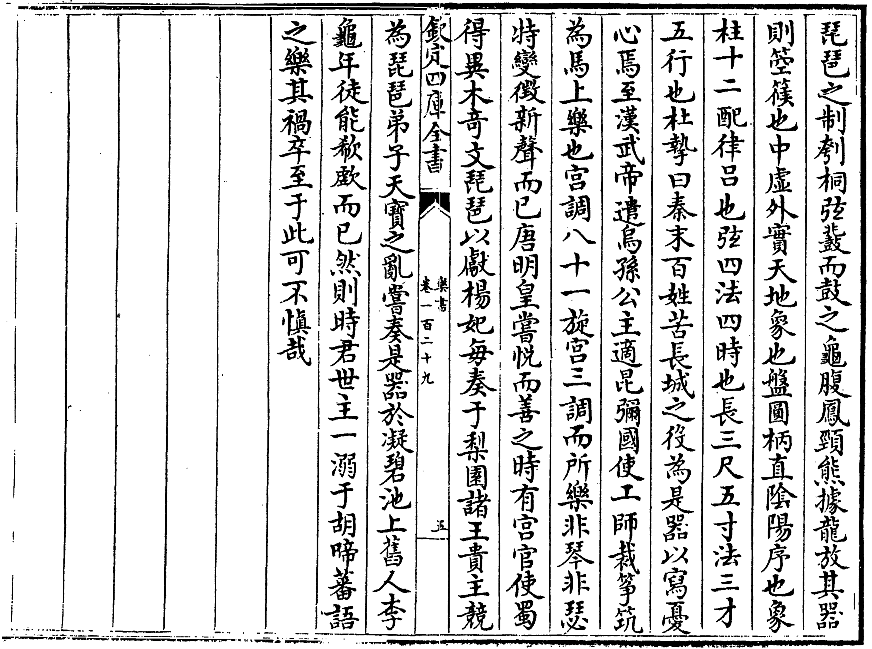 琵琶之制刳桐弦鼗而鼓之龜腹鳳頸熊據龍放其器
則箜篌也中虛外實天地象也盤圎柄直陰陽序也象
柱十二配律吕也弦四法四時也長三尺五寸法三才
五行也杜摯曰秦末百姓苦長城之役為是器以寫憂
心焉至漢武帝遣烏孫公主適昆彌國使工師裁箏筑
為馬上樂也宫調八十一旋宫三調而所樂非琴非瑟
特變徴新聲而已唐明皇嘗悦而善之時有宫官使蜀
得異木竒文琵琶以獻楊妃每奏于梨園諸王貴主競
欽定四庫全書
樂書
卷一百二十九
五
為琵琶弟子天寶之亂嘗奏是器於凝碧池上舊人李
龜年徒能欷歔而已然則時君世主一溺于胡啼蕃語
之樂其禍卒至于此可不慎哉